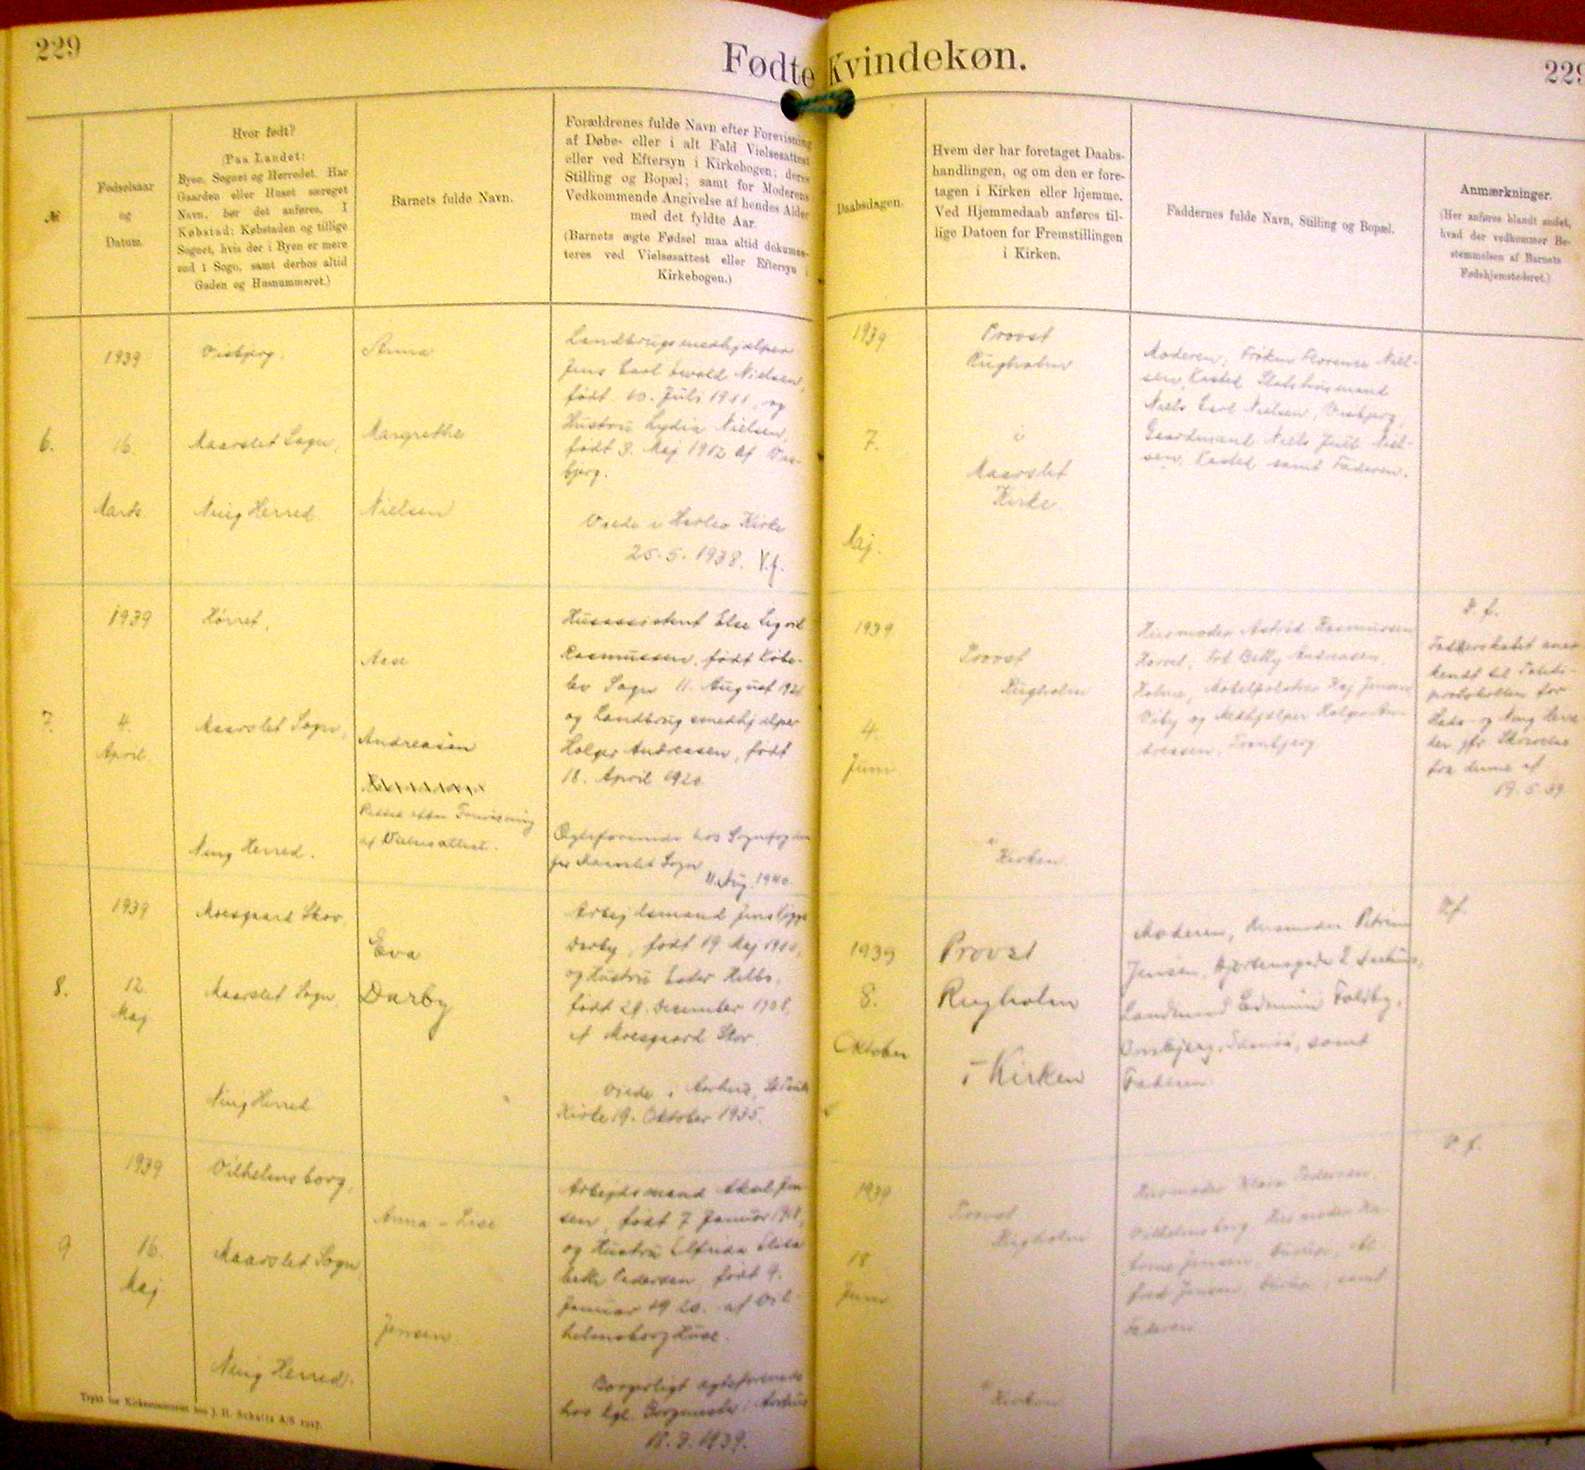 229
Fødte Kvindekøn.
229
№
Fødselsaar
og
Datum.
Hvor født?
(Paa Landet:
Byen, Sognet og Herredet. Har
Gaarden eller Huset særeget
Navn, bør det anføres. I
Købstad: Købstaden og tillige
Sognet, hvis der i Byen er mere
end 1 Sogn, samt derhos altid
Gaden og Husnummeret.)
Barnets fulde Navn.
Forældrenes fulde Navn efter Forevisning
af Døbe- eller i alt Fald Vielsesattest
eller ved Eftersyn i Kirkebogen; deres
Stilling og Bopæl; samt for Moderens
Vedkommende Angivelse af hendes Alder
med det fyldte Aar.
(Barnets ægte Fødsel maa altid dokumen-
teres ved Vielsesattest eller Eftersyn i
Kirkebogen.)
Daabsdagen.
Hvem der har foretaget Daabs-
handlingen, og om den er fore-
tagen i Kirken eller hjemme.
Ved Hjemmedaab anføres til-
lige Datoen for Fremstillingen
i Kirken.
Faddernes fulde Navn, Stilling og Bopæl.
Anmærkninger.
(Her anføres blandt andet,
hvad der vedkommer Be-
stemmelsen af Barnets
Fødehjemstederet.)
6.
1939
16.
Marts
Visbjerg.
Maarslet Sogn,
Ning Herred
Anna
Margrethe
Nielsen
Landbrugsmedhjælper
Jens Carl Ewald Nielsen,
født 10. Juli 1911, og
Hustru Lydia Nielsen,
født 3. Maj 1912 af Vis-
bjerg.
Viede i Kirke
25.5.1938. V.f.
1939
7.
Maj.
Provst
Rugholm
i
Maarslet
Kirke.
Moderen, Frøken Florence Niel-
sen, Kasted, Statshusmand
Niels Carl Nielsen, Visbjerg,
Gaardmand Niels Juul Niel-
sen, Kasted samt Faderen.
7.
1939
4.
April
Hørret,
Maarslet Sogn,
Ning Herred.
Aase
Andreasen
Rettet efter Forevisning
af Vielsesattest.
Husassistent Else Sigrid
Rasmussen, født
Sogn 11. August 1921
og Landbrugsmedhjælper
Holger Andreasen, født
18. April 1920
Ægteforenede hos Sognefogden
for Maarslet Sogn
11. Aug. 1940.
1939
4.
Juni
Provst
Rugholm
i Kirken
Husmoder Astrid Rasmussen
Hørret, Frk Betty Andreasen,
Holme, Møbelpolstrer Kaj Jensen
Viby og Medhjælper Holger An-
dreasen, Tranbjerg
V.f.
Faderskabet aner-
kendt til Politi-
protokollen for
Hads- og Ning Herre-
der jfr. Skrivelse
fra denne af
19.5.39.
8.
1939
12.
Maj
Moesgaard Skov,
Maarslet Sogn,
Ning Herred
Eva
Darby
Arbejdsmand Jens
Darby, født 19. Maj
og Hustru Ester
født 29. December 1908,
af Moesgaard Skov.
Viede i Aarhus, St Pauls
Kirke 19. Oktober 1935.
1939
8.
Oktober
Provst
Rugholm
i Kirken
Moderen, Husmoder Petrine
Jensen, Hjortensgade 2 Aarhus,
Landmand Edmund Foldby,
Onsbjerg, Samsø, samt
Faderen
V.f.
9
1939
16.
Maj
Vilhelmsborg,
Maarslet Sogn,
Ning Herred.
Anna-Lise
Jensen
Arbejdsmand Aksel Jen-
sen, født 7 Januar 1918,
og Hustru Elfrida Elisa-
beth Pedersen, født 9.
Januar 1920. af Vil-
helmsborg Huse.
Borgerligt ægteforenede
hos kgl. Borgmester i Aarhus
18.3.1939.
1939
18.
Juni
Provst
Rugholm
i Kirken
Husmoder Klara Pedersen,
Vilhelmsborg, Husmoder
Jensen,
Jensen, samt
Faderen
V.f.
Trykt for Kirkeministeriet hos J. H. Schultz A/S 1927.